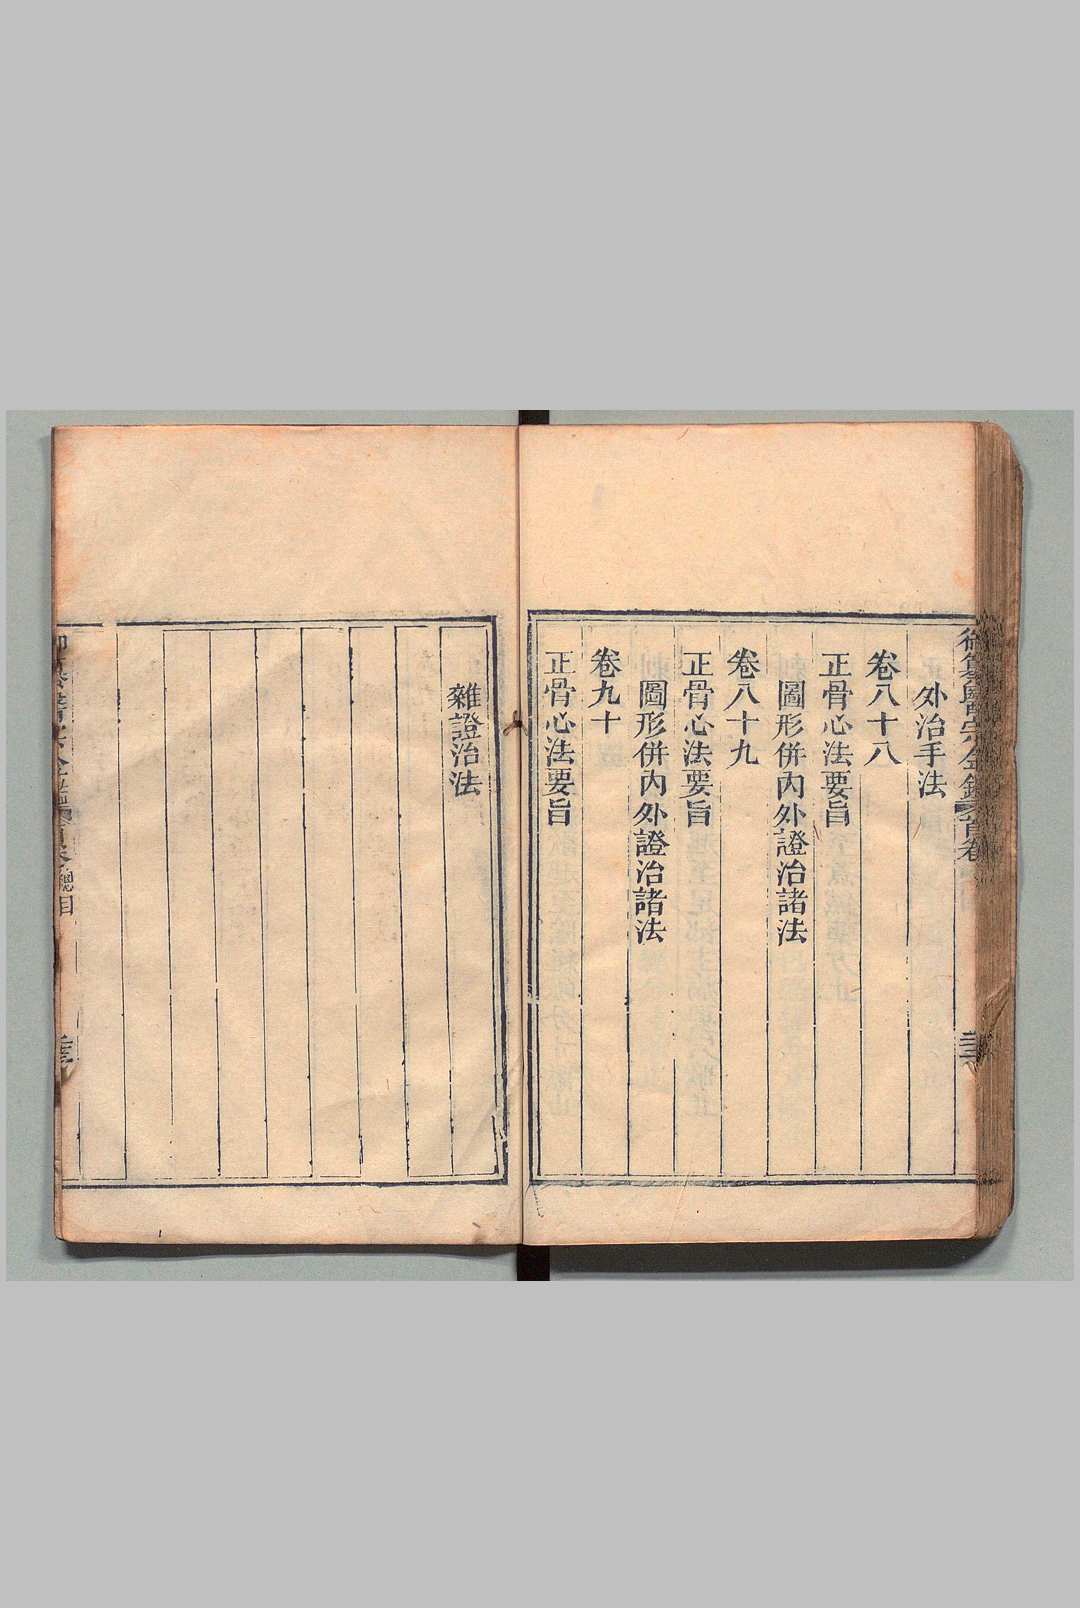 御纂醫宗金鑑 首卷
外治手法
卷八十八
正骨心法要旨
圖形併內外證治諸法
卷八十九
正骨心法要旨
圖形併內外證治諸法
卷九十
正骨心法要旨
雜證治法
御纂醫宗金鑑 首卷 總目